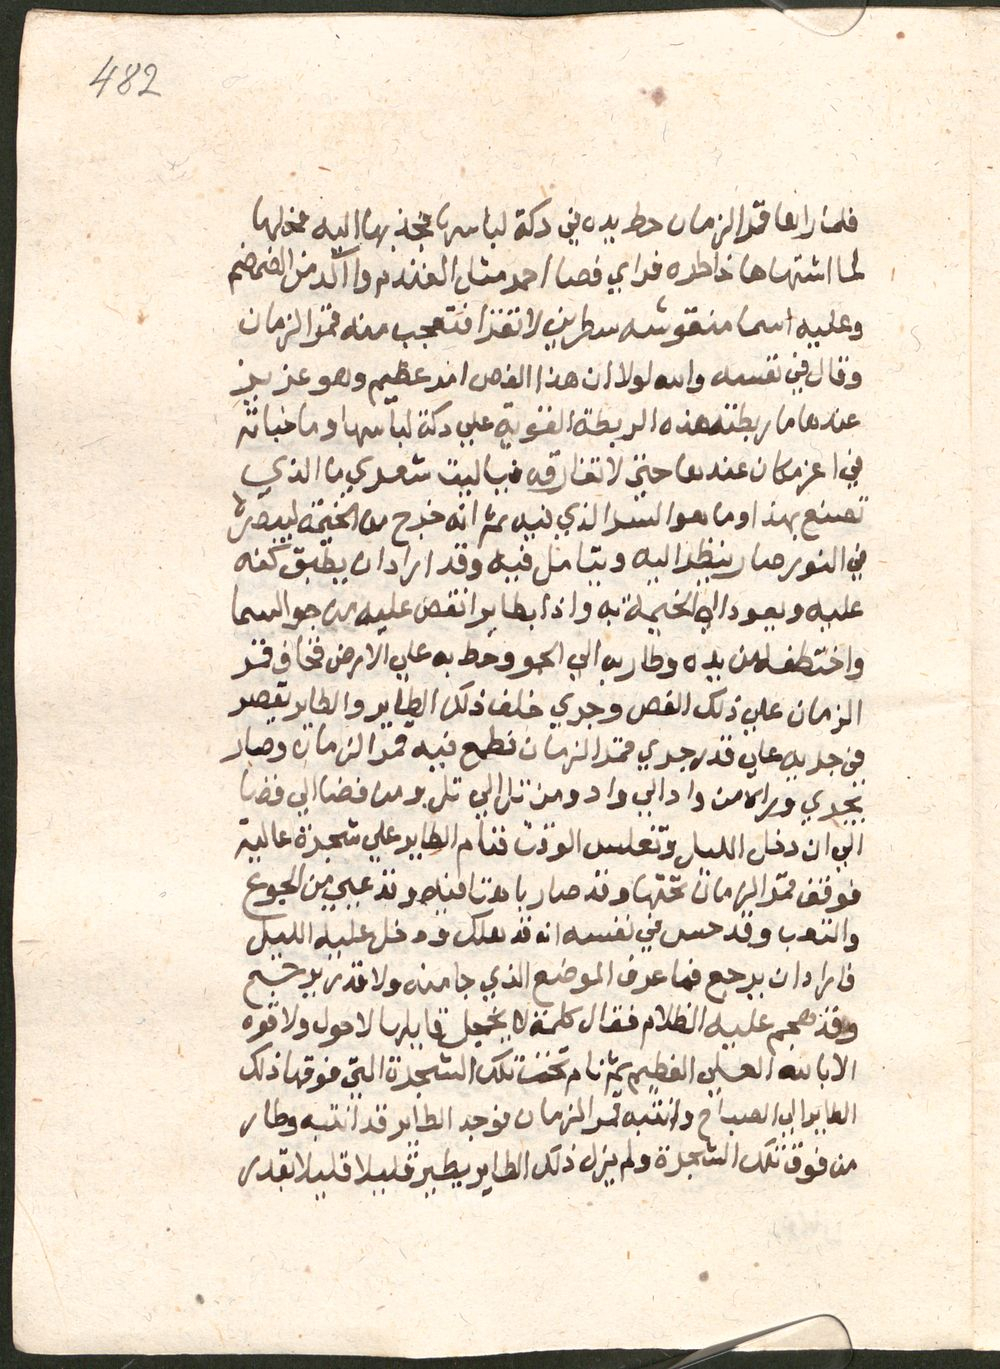 482
فلما راها قمر الزمان حط يده في دكة لباسها فجذبها اليه فحلها
لما اشتهاها خاطره فراي فصا احمر مثل العندم
وعليه اسما منقوشه سطرين لا تقرا فتعجب منه قمر الزمان
وقال في نفسه والله لولا ان هذا الفص امر عظيم وهو عزيز
عندها ما ربطته هذه الربطة القوية علي دكة لباسها وما خباته
في اعز مكان عندها حتي لا تفارقه فياليت شعري ما الذي
تصنع بهذا وما هو السر الذي فيه ثم انه خرج من الخيمة ليبصره
في النور صار ينظر اليه ويتامل فيه وقد اراد ان يطبق كفه
عليه ويعود الي الخيمة به واذا بطاير انقض عليه من جو السما
واختطفه من يده وطار به الي الجو وحط به علي الارض فخاف قمر
الزمان علي ذلك الفص وجري خلف ذلك الطاير والطاير يقصر
في جريه علي قدر جري قمر الزمان فطمع فيه قمر الزمان وصار
يجري وراه من واد الي واد ومن تل الي تل ومن فضا الي فضا
الي ان دخل الليل وتغلس الوقت فنام الطاير علي شجرة عالية
فوقف قمر الزمان تحتها وقد صار باهتا فيه وقد عيي من الجوع
والتعب وقد حس في نفسه انه قد هلك ودخل عليه الليل
فاراد ان يرجع فما عرف الموضع الذي جا منه ولا قدر يرجع
وقد هجم عليه الظلام فقال كلمة لا يخجل قايلها لا حول ولا قوه
الا بالله العلي العظيم ثم نام تحت تلك الشجرة التي فوقها ذلك
الطاير الي الصباح وانتبه قمر الزمان فوجد الطاير قد انتبه وطار
من فوق تلك الشجرة ولم يزل ذلك الطاير يطير قليلا قليلا بقدر